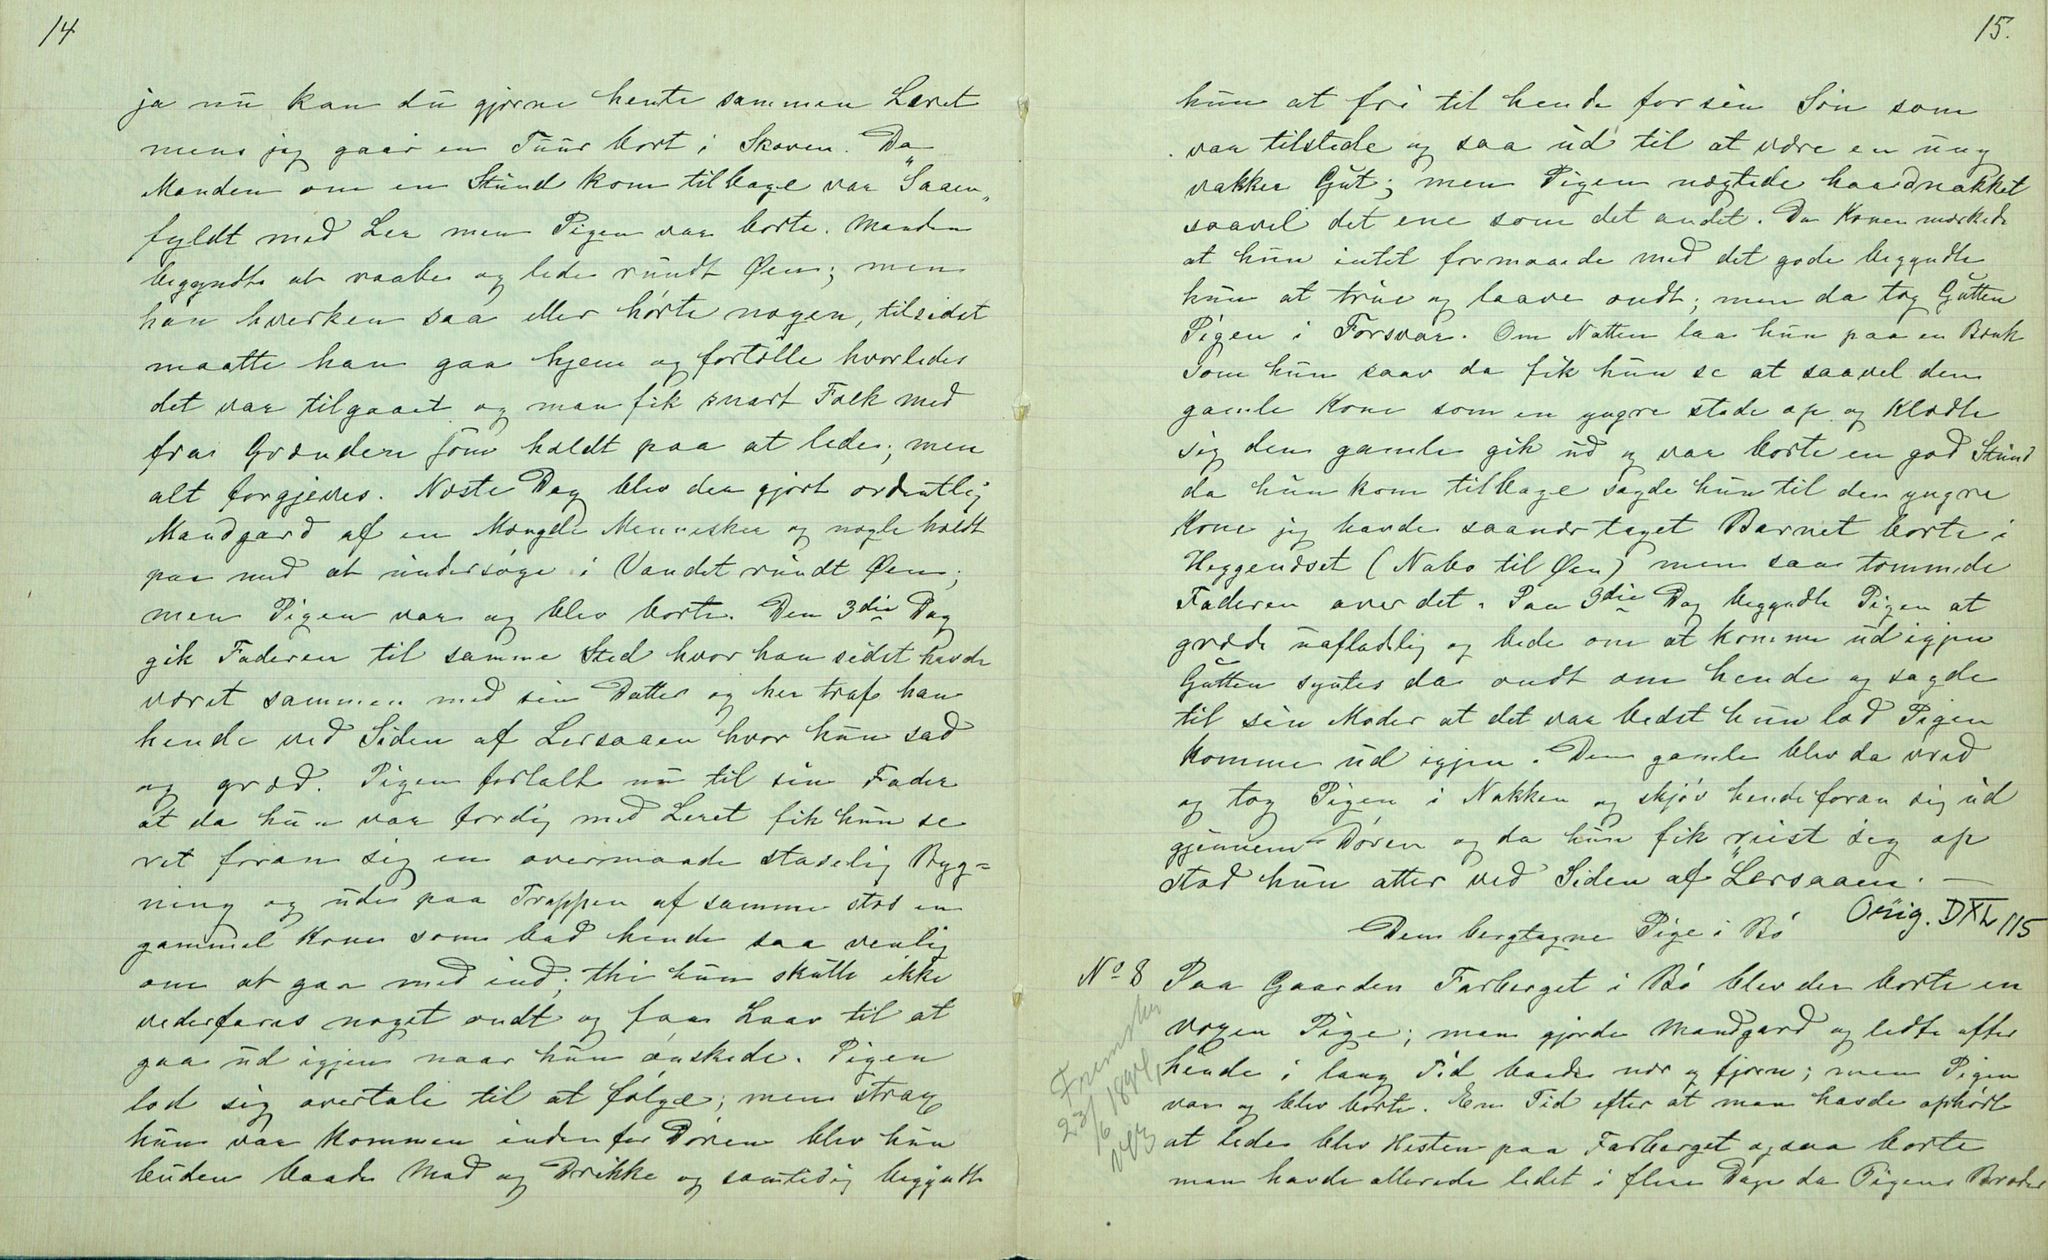 14
ja nu kan du gjerne hente sammen Leret
mens jeg gaar en Tuur bort i Skoven. Da
Manden om en Stund kom tilbage var "Saaen"
fyldt med Ler men Pigen var borte. Manden
begyndte at raabe og lede rundt Øen; men
han hverken saa eller hørte nogen, tilsidst
maatte han gaa hjem og fortælle hvorledes
det var tilgaaet og man fik snart Folk med
fra Grænden som holdt paa at lede; men
alt forgjæves. Næste Dag blev der gjort ordentlig
Mandgard af en Mængde Mennesker og nogle holdt
paa med at undersøge i Vandet rundt Øen;
men Pigen var og blev borte. Den 3die Dag
gik Faderen til samme Sted hvor han sidst havde
været sammen med sin Datter og her traf han
hende ved Siden af Lersaaen hvor hun sad
og græd. Pigen fortalte nu til sin Fader
at da hun var færdig med Leret fik hun se
ret foran sig en overmaade stadselig Byg=
ning og ude paa Trappen af samme stod en
gammel Kone som bad hende saa venlig
om at gaa med ind; thi hun skulle ikke
vederfares noget ondt og faa Laav til at
gaa ud igjen naar hun ønskede. Pigen
lod sig overtale til at følge; men strax
hun var kommen indenfor Døren blev hun
buden baade Mad og Drikke og samtidig begyndte
15.
hun at fri til hende for sin Søn som
var tilstede og saa ud til at være en ung
vakker Gut; men Pigen nægtede haardnakket
saavel det ene som det andet. Da Konen mærkede
at hun intet formaade med det gode begyndte
hun at true og laave ondt; men da tog Gutten
Pigen i Forsvar. Om Natten laa hun paa en Bænk
som hun saav da fik hun se at saavel den
gamle Kone som en yngre stode op og klædte
sig den gamle gik ud og var borte en god Stund
da hun kom tilbage sagde hun til den yngre
Kone jeg havde saanær taget Barnet borte i
Heggendset (Nabo til Øen) men saa tommede
Faderen over det. Paa 3die Dag begyndte Pigen at
græde uafladelig og bede om at komme ud igjen
Gutten syntes da ondt om hende og sagde
til sin Moder at det var bedst hun lod Pigen
komme ud igjen. Den gamle blev da vred
og tog Pigen i Nakken og skjøv hende foran sig ud
gjennem Døren og da hun fik reist sig op
stod hun atter ved Siden af "Lersaaen. —
Orig. DXL 115
Den bergtagne Pige i Bø
No 8 Paa Gaarden Farberget i Bø blev der borte en
voxen Pige; man gjorde Mandgard og ledte efter
hende i lang Tid baade nær og fjern; men Pigen
var og blev borte. En Tid efter at man havde ophørt
at lede blev Hesten paa Farberget ogsaa borte
man havde allerede ledet i flere Dage da Pigens Broder
23/6 1894